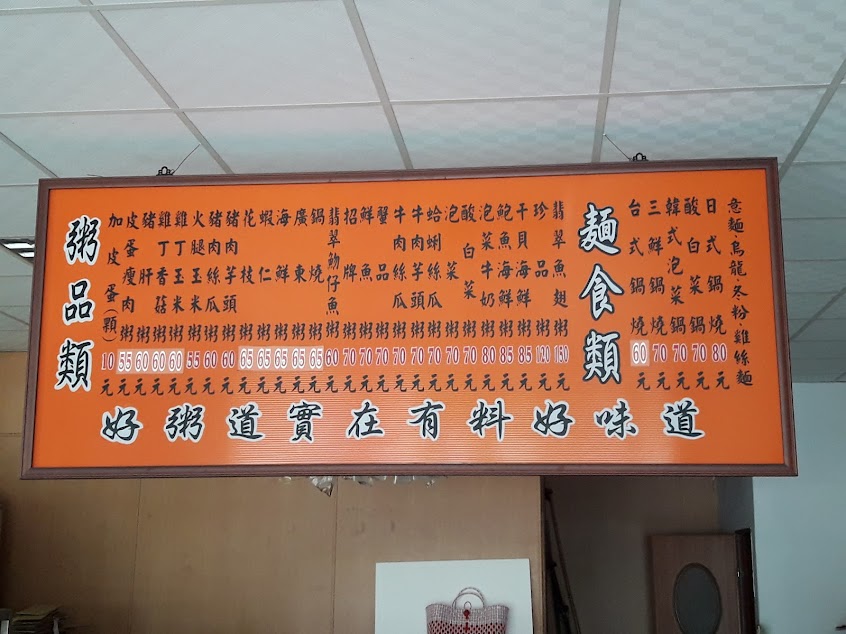 粥品類
加皮蛋(顆)10元
皮蛋瘦肉粥55元
豬肝粥60元
雞丁香菇粥60元
雞丁玉米粥60元
火腿玉米粥55元
豬肉絲瓜粥60元
豬肉芋頭粥60元
花枝粥65元
蝦仁粥65元
海鮮粥65元
廣東粥65元
鍋燒粥65元
翡翠魩仔魚粥60元
招牌粥70元
鮮魚粥70元
蟹品粥70元
牛肉絲瓜粥70元
牛肉芋頭粥70元
蛤蜊絲瓜粥70元
泡菜粥70元
酸白菜粥70元
泡菜牛奶粥80元
鮑魚海鮮粥85元
干貝海鮮粥85元
珍品粥120元
翡翠魚翅粥150元
麵食類
台式鍋燒60元
三鮮鍋燒70元
韓式泡菜鍋70元
酸白菜鍋70元
日式鍋燒80元
意麵·烏龍·冬粉·雞絲麵
好粥道實在有料好味道